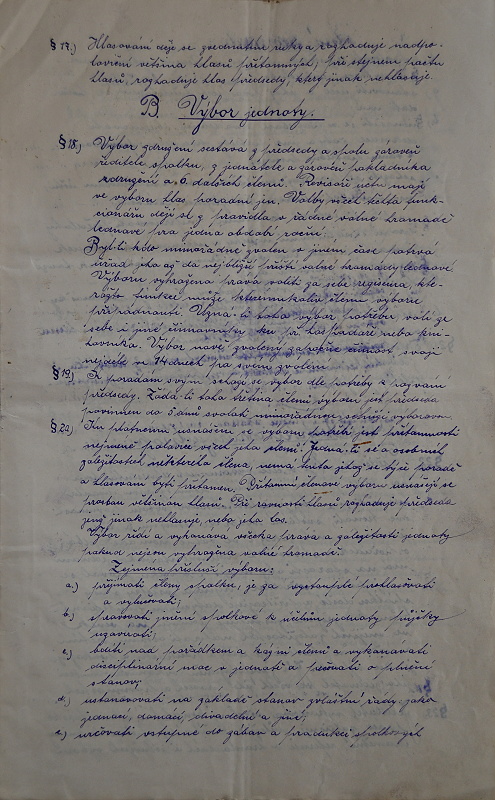 § 17.) Hlasování děje se zvednutím ruky a rozhoduje nadpo-
loviční většina hlasů přítomných; při stejném počtu
hlasů, rozhoduje hlas předsedy, který jinak nehlasuje.
B. Výbor jednoty.
§ 18.) Výbor sdružení sestává z předsedy a spolu zároveň
ředitele spolku, z jednatele a zároveň pokladníka
sdružení a 6 dalších členů. Revisoři účtů mají
ve výboru hlas poradní jen. Volby všech těchto funk-
cionářů dějí se z pravidla v řádné valné hromadě
lednové pro jedno období roční.
Byl-li kdo mimořádně zvolen v jiném čase potrvá
úřad jeho až do nejbližší příští valné hromady lednové.
Výboru vyhražena práva voliti za sebe regseéna, kte-
rážto funkci může kterémukoliv členu výboru
při řádnouti. Uzná-li toho výbor potřebu volí ze
sebe i jiné činovníky ku př. hospodáře nebo kni-
hovníka. Výbor nově zvolený započne činnost svoji
nejdéle ve 14 dnech po svém zvolení.
§ 19.) K poradám svým schází se výbor dle potřeby k pozvání
předsedy. Žádá-li toho třetina členů výboru jest předseda
povinen do 8 dnů svolati mimořádnou schůzi výborovou.
§ 20.) Ku platnému usnášení se výboru jest přítomnosti
nejméně polovice všech jeho členů. Jedná-li se o osobních
záležitostech některého člena, nemá tento jehož se týče poradě
a hlasování býti přítomen. Přítomní členové výboru usnášejí se
prostou většinou hlasů. Při rovnosti hlasů rozhoduje předseda
jenž jinak nehlasuje, nebo jeho los.
Výbor řídí a vykonává všecka práva a záležitosti jednoty
pokud nejsou vyhražena valné hromadě.
Zejména přísluší výboru:
a.) přijímati členy spolku, je za vystouplé prohlašovati
a vylučovati;
b.) spravovati jmění spolkové k účelům jednoty půjčky
uzavírati;
c.) bdíti nad pořádkem a kázní členů a vykonávati
disciplinární moc v jednotě a pečovati o plnění
stanov;
d.) ustanovovati na základě stanov zvláštní řády, jako
jednací, domácí, divadelní a jiné;
e.) určovati vstupné do zábav a produkcí spolkových